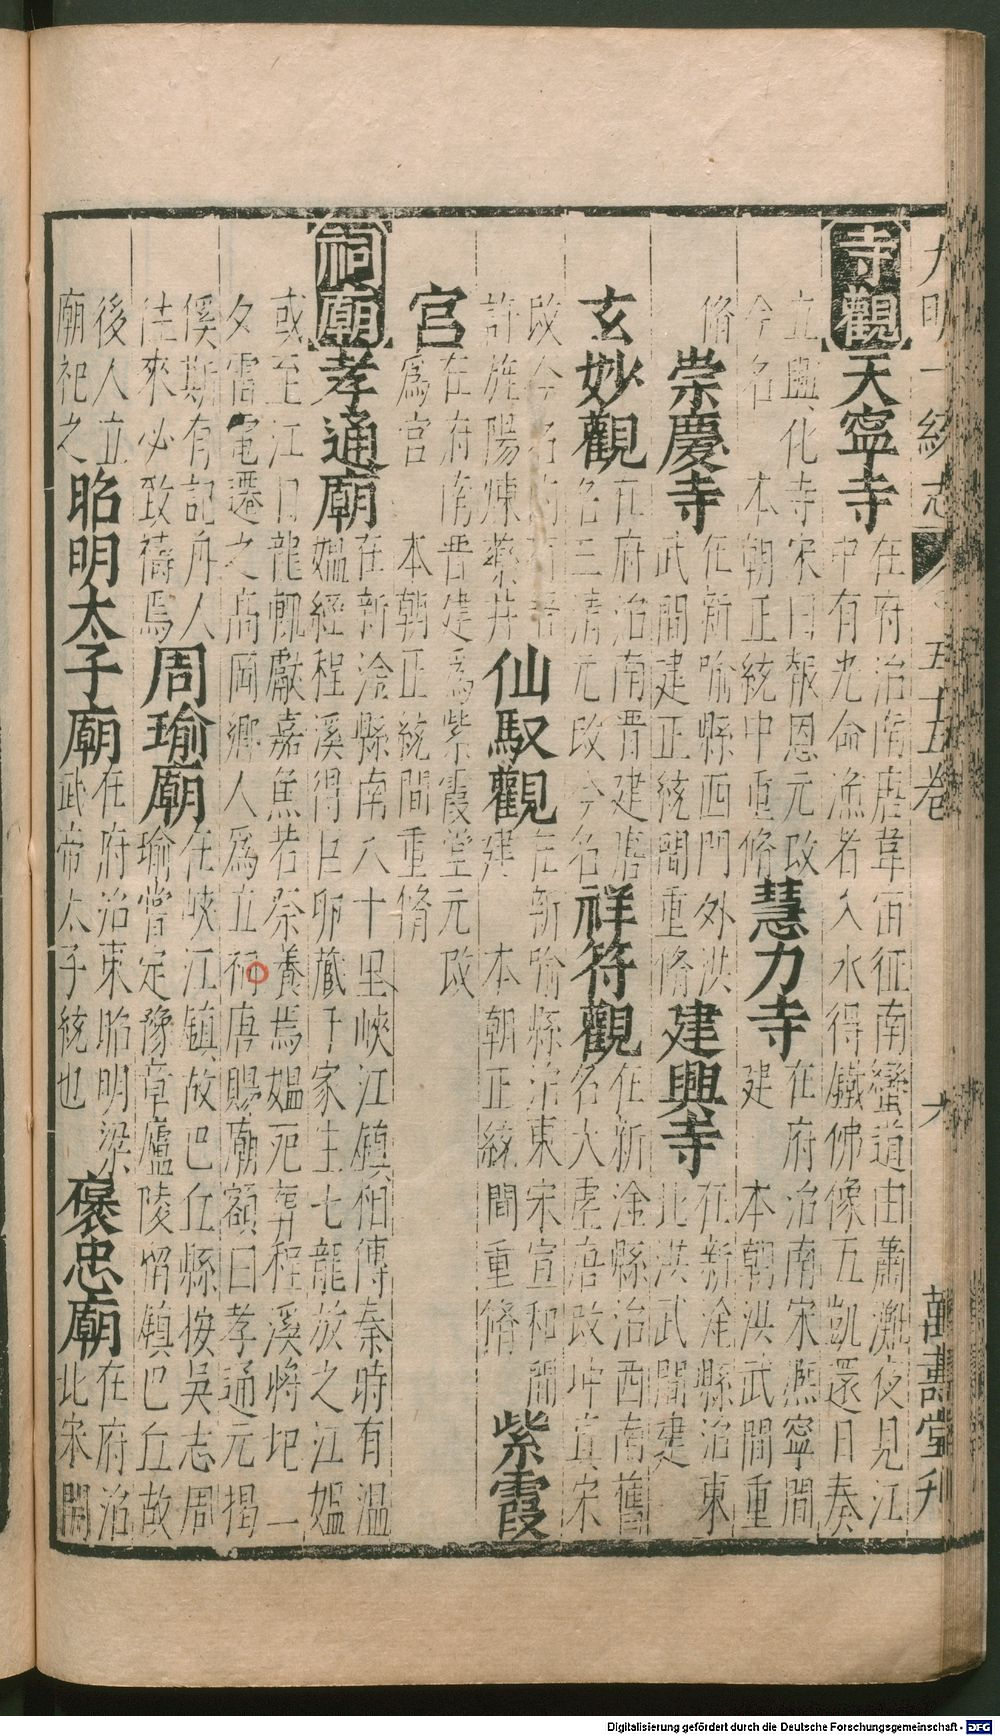 大明一統志 五十五卷 九 萬壽堂刊
寺觀 天寧寺
在府治南唐韋宙征南蠻道由蕭灘夜見江
中有光命漁者入水得鐵佛像五凱還日奏
立興化寺宋曰報恩元改
今名 本朝正統中重脩
慧力寺
在府治南宋熙寧間
建 本朝洪武間重
脩
崇慶寺
在新喻縣西門外洪
武間建正統間重脩
建興寺
在新淦縣治東
北洪武間建
玄妙觀
在府治南晋建唐
名三清元改今名
祥符觀
在新淦縣治西南舊
名大虛唐改冲真宋
改今名內有晋
許旌陽煉藥井
仙馭觀
在新喻縣治東宋宣和間
建 本朝正統間重脩
紫霞
宮
在府南晋建為紫霞堂元改
為宮 本朝正統間重脩
祠廟 孝通廟
在新淦縣南八十里峽江鎮相傳秦時有温
媪經程溪得巨卵藏于家生七龍放之江媪
或至江口龍輒獻嘉魚若奈養焉媪死葬程溪將圯一
夕雷電遷之高岡鄉人為立祠唐賜廟額曰孝通元揭
傒斯有記舟人
往來必致禱焉
周瑜廟
在峽江鎮故巴丘縣按吳志周
瑜嘗定豫章廬陵留鎮巴丘故
後人立
廟祀之
昭明太子廟
在府治東昭明梁
武帝太子統也
褒忠廟
在府治
北宋開
Digitalisierung gefördert durch die Deutsche Forschungsgemeinschaft - DFG